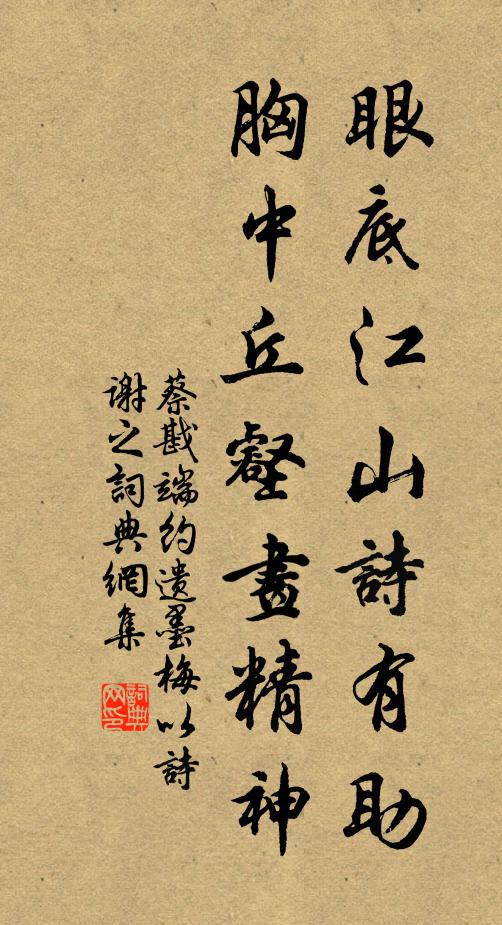 眼底江山詩有助
胸中丘壑畫精神
蔡戡端約遺墨梅以詩
謝之詞典網集
詞典网印